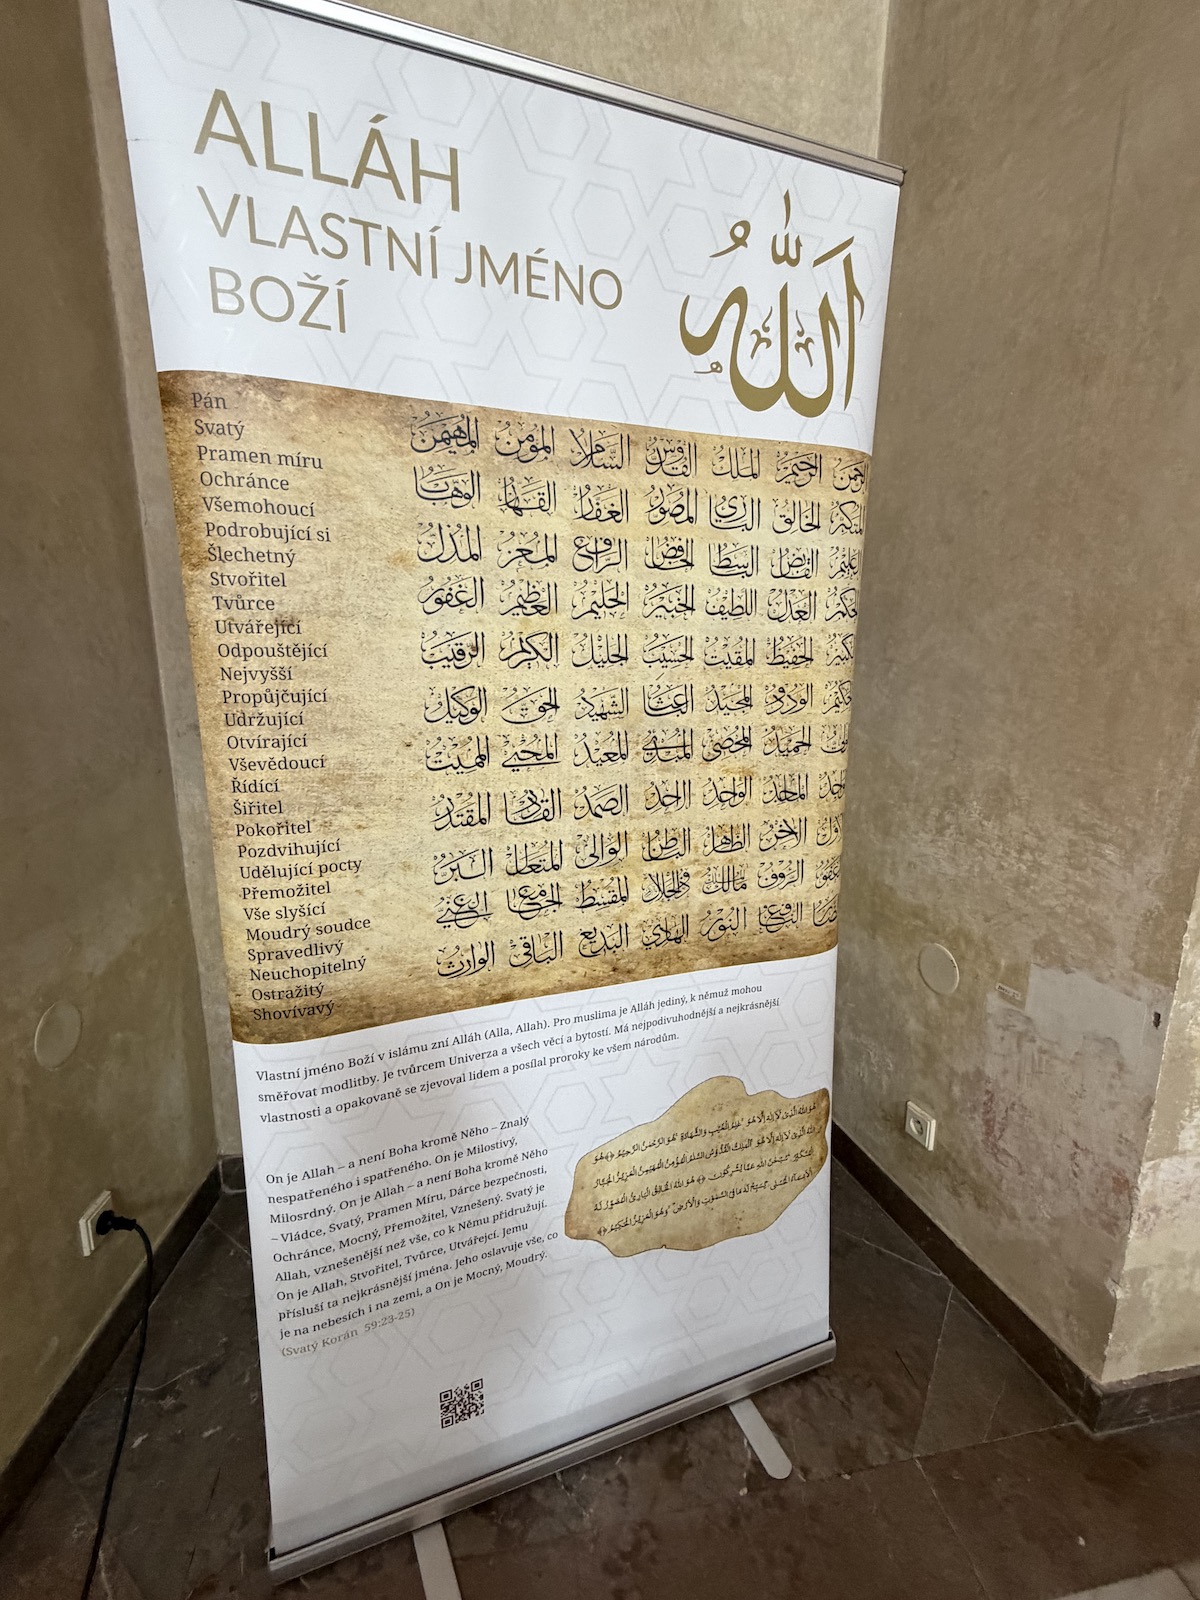 ALLÁH
VLASTNÍ JMÉNO
BOŽÍ
اللَّه
Pán
Svatý
Pramen míru
Ochránce
Všemohoucí
Podrobující si
Šlechetný
Stvořitel
Tvůrce
Utvářející
Odpouštějící
Nejvyšší
Propůjčující
Udržující
Otvírající
Vševědoucí
Řídící
Šiřitel
Pokořitel
Pozdvihující
Udělující pocty
Přemožitel
Vše slyšící
Moudrý soudce
Spravedlivý
Neuchopitelný
Ostražitý
Shovívavý
الرحيم الملك القدوس السلام المؤمن المهيمن
الخالق البارئ المصور الغفار القهار الوهاب
القابض الباسط الخافض الرافع المعز المذل
العدل اللطيف الخبير الحليم العظيم الغفور
الحفيظ المقيت الحسيب الجليل الكريم الرقيب
الودود المجيد الباعث الشهيد الحق الوكيل
الحميد المحصي المبدئ المعيد المحيي المميت
الماجد الواحد الاحد الصمد القادر المقتدر
الآخر الظاهر الباطن الوالي المتعال البر
الرءوف مالك الملك المقسط الجامع الغني
النافع النور الهادي البديع الباقي الوارث
Vlastní jméno Boží v islámu zní Alláh (Alla, Allah). Pro muslima je Alláh jediný, k němuž mohou
směřovat modlitby. Je tvůrcem Univerza a všech věcí a bytostí. Má nejpodivuhodnější a nejkrásnější
vlastnosti a opakovaně se zjevoval lidem a posílal proroky ke všem národům.
On je Allah – a není Boha kromě Něho – Znalý
nespatřeného i spatřeného. On je Milostivý,
Milosrdný. On je Allah – a není Boha kromě Něho
– Vládce, Svatý, Pramen Míru, Dárce bezpečnosti,
Ochránce, Mocný, Přemožitel, Vznešený. Svatý je
Allah, vznešenější než vše, co k Němu přidružují.
On je Allah, Stvořitel, Tvůrce, Utvářejcí. Jemu
přísluší ta nejkrásnější jména. Jeho oslavuje vše, co
je na nebesích i na zemi, a On je Mocný, Moudrý.
(Svatý Korán 59:23-25)
هُوَ اللهُ الَّذِي لَا إِلَهَ إِلَّا هُوَ عَالِمُ الْغَيْبِ وَالشَّهَادَةِ هُوَ الرَّحْمَنُ الرَّحِيمُ هُوَ
اللهُ الَّذِي لَا إِلَهَ إِلَّا هُوَ الْمَلِكُ الْقُدُّوسُ السَّلَامُ الْمُؤْمِنُ الْمُهَيْمِنُ الْعَزِيزُ الْجَبَّارُ
الْمُتَكَبِّرُ سُبْحَانَ اللهِ عَمَّا يُشْرِكُونَ هُوَ اللهُ الْخَالِقُ الْبَارِئُ الْمُصَوِّرُ لَهُ
الْأَسْمَاءُ الْحُسْنَى يُسَبِّحُ لَهُ مَا فِي السَّمَوَاتِ وَالْأَرْضِ وَهُوَ الْعَزِيزُ الْحَكِيمُ